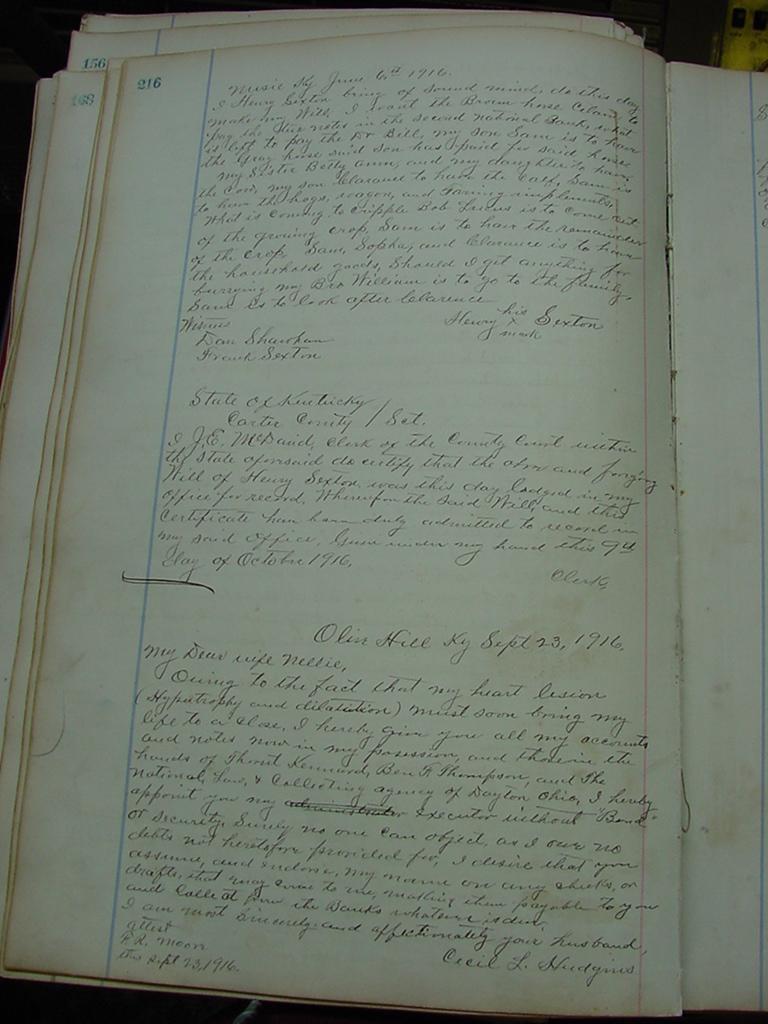 156
168
216
Musie Ky June 6th 1916.
I Henry Sexton being of sound mind, do this day
make my Will, I want the Brown horse Colan to
pay the Stier notes in the second National Bank, what
is left to pay the Dr Bill, my son Sam is to have
the Gray horse said son has paid for said horse
my Sister Betty Ann, and my daughter to have
the Cow, my son Clarance to have the Calf, Sam is
to have the hogs, wagon, and Farming implements,
What is coming to Cripple Bob Lucus is to come out
of the growing crop, Sam is to have the remainder
of the crop. Sam, Sopha, and Clarance is to have
the household goods, Should I get anything for
burrying my Bro William is to go to the family,
Sam is to look after Clarence
his
Henry X Sexton
mark
Witness
Dan
Frank Sexton
State of Kentucky
Carter County / Sct.
I J.E. McDavid, Clerk of the County Court within
the State aforesaid do certify that the above and forgoing
Will of Henry Sexton, was this day lodged in my
office for record, Wherefore the said Will, and this
Certificate have been duly admitted to record in
my said office, Given under my hand this 9th
day of October 1916.
Clerk,
Olive Hill Ky Sept 23, 1916.
My Dear wife Nellie,
Owing to the fact that my heart lesion
(Hypertrophy and dilatation) must soon bring my
life to a close, I hereby give you all my accounts
and notes now in my posession, and those in the
hands of Kennard, Ben F Thompson, and The
National, Law, & Collecting agency of Dayton Ohio, I hereby
appoint you my administrator executor without Bond
or Security, Surely no one can object, as I owe no
debts not heretofore provided for, I desire that you
assume, and endorse, my name on any checks, or
drafts, that may come to me, making them payable to you
and Collect from the Banks whatever is due,
I am most sincerely and affectionately your husband,
Cecil L. Hudgins
attest
R.R. Moore
this Sept 23, 1916.